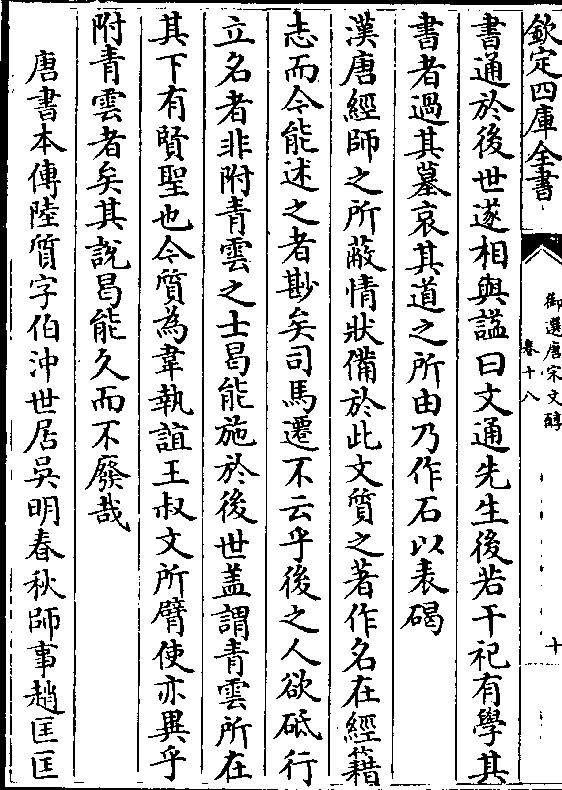 欽定四庫全書
御選唐宋文醇
卷十八
十
書通於後世遂相與謚曰文通先生後若干祀有學其
書者過其墓哀其道之所由乃作石以表碣
漢唐經師之所蔽情狀備於此文質之著作名在經籍
志而今能述之者尠矣司馬遷不云乎後之人欲砥行
立名者非附青雲之士曷能施於後世盖謂青雲所在
其下有賢聖也今質為韋執誼王叔文所臂使亦異乎
附青雲者矣其說曷能久而不廢哉
唐書本傳陸質字伯沖世居吳明春秋師事趙匡匡